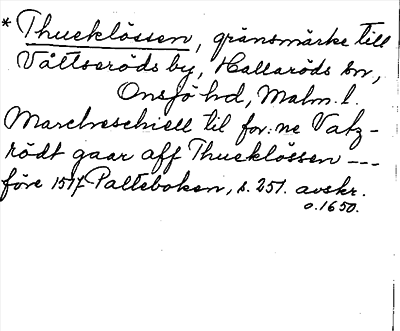 * Thuecklössen, gränsmärke till
Våttseröds by, Hallaröds sn,
Onsjö hd, Malm. l.
Marcheschiell til for:ne Vatz-
rödt gaar aff Thuecklössen ---
före 1517 Palteboken, s. 251. avskr.
o. 1650.